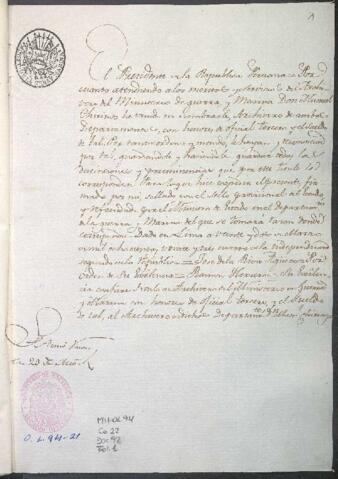 1
El Presidente de la Republica Peruana = Por
cuanto atendiendo a los meritos y servicios del
del Ministerio de guerra, y Marina Don Manuel
ha venido en nombrarle Archivero de ambos
Departamentos, con honores de oficial tercero, y el sueldo
de tal. Por tanto ordeno y mando, le hayan, y reconozcan
por tal, guardandole y haciendole guardar todas las
distinciones y preeminencias que por este titulo le
corresponden. Para lo que hice expedir el presente, firmado
por mi, sellado con el sello provisional del Estado
y refrendado por el Ministro de Estado en el departamento
de la guerra y Marina del que se tomará razon donde
corresponda. Dada en Lima a veinte y dos de Marzo
de mil ochocientos veinte y tres, cuarto de la independencia
segundo de la Republica = Jose de la Riva Aguero = Por
orden de Su Excelencia = Ramon Herrera = Su Excelencia
confiere titulo de Archivero del Ministerio de Guerra
y Marina con honores de oficial tercero, y el sueldo
de tal, al Archivero de dicho Departamto
Se tomó razon
MH-OL 94
Ca 22
Doc 92
Fol. 1
O.L. 94-21